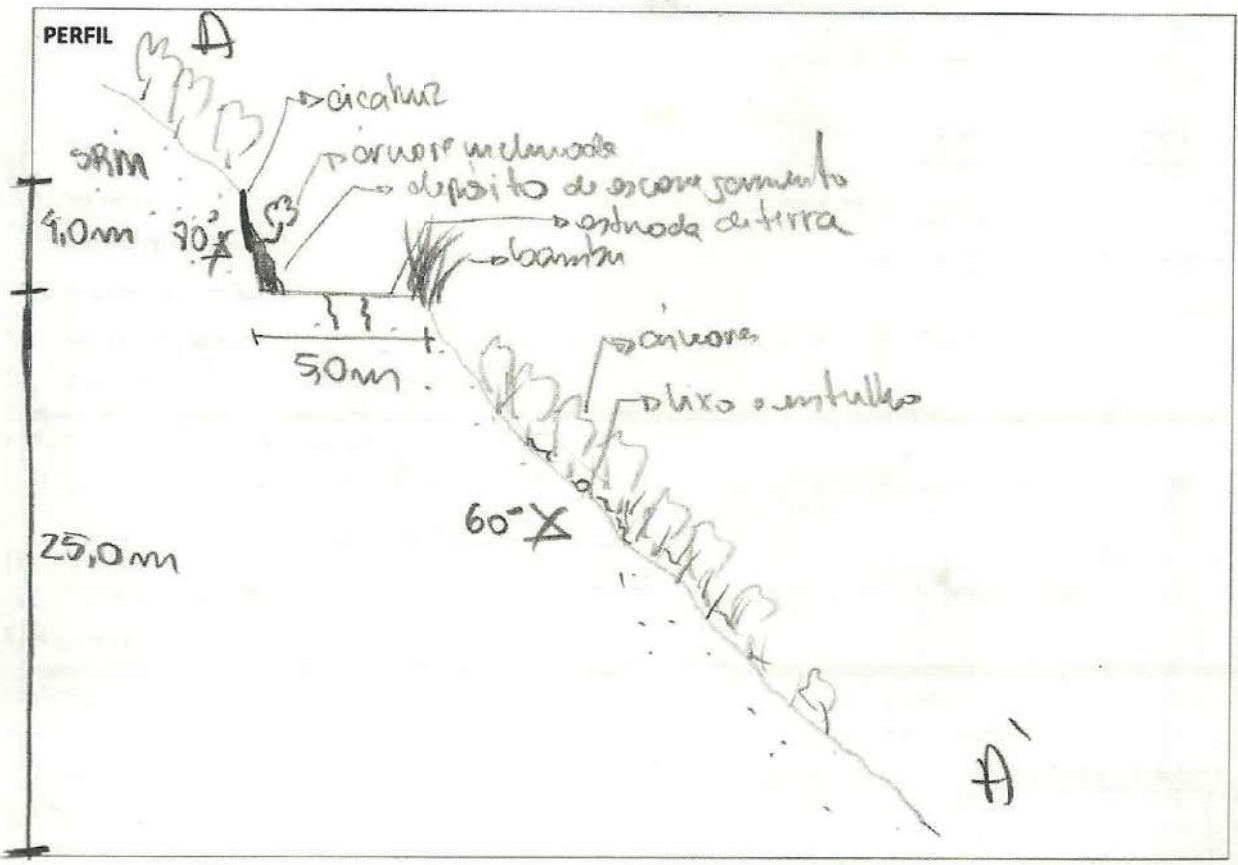 PERFIL
A
cicatriz
árvore inclinada
depósito de escorregamento
SRM
estrada de terra
4,0m
bambu
5,0m
árvores
lixo e entulho
60°
25,0m
A'